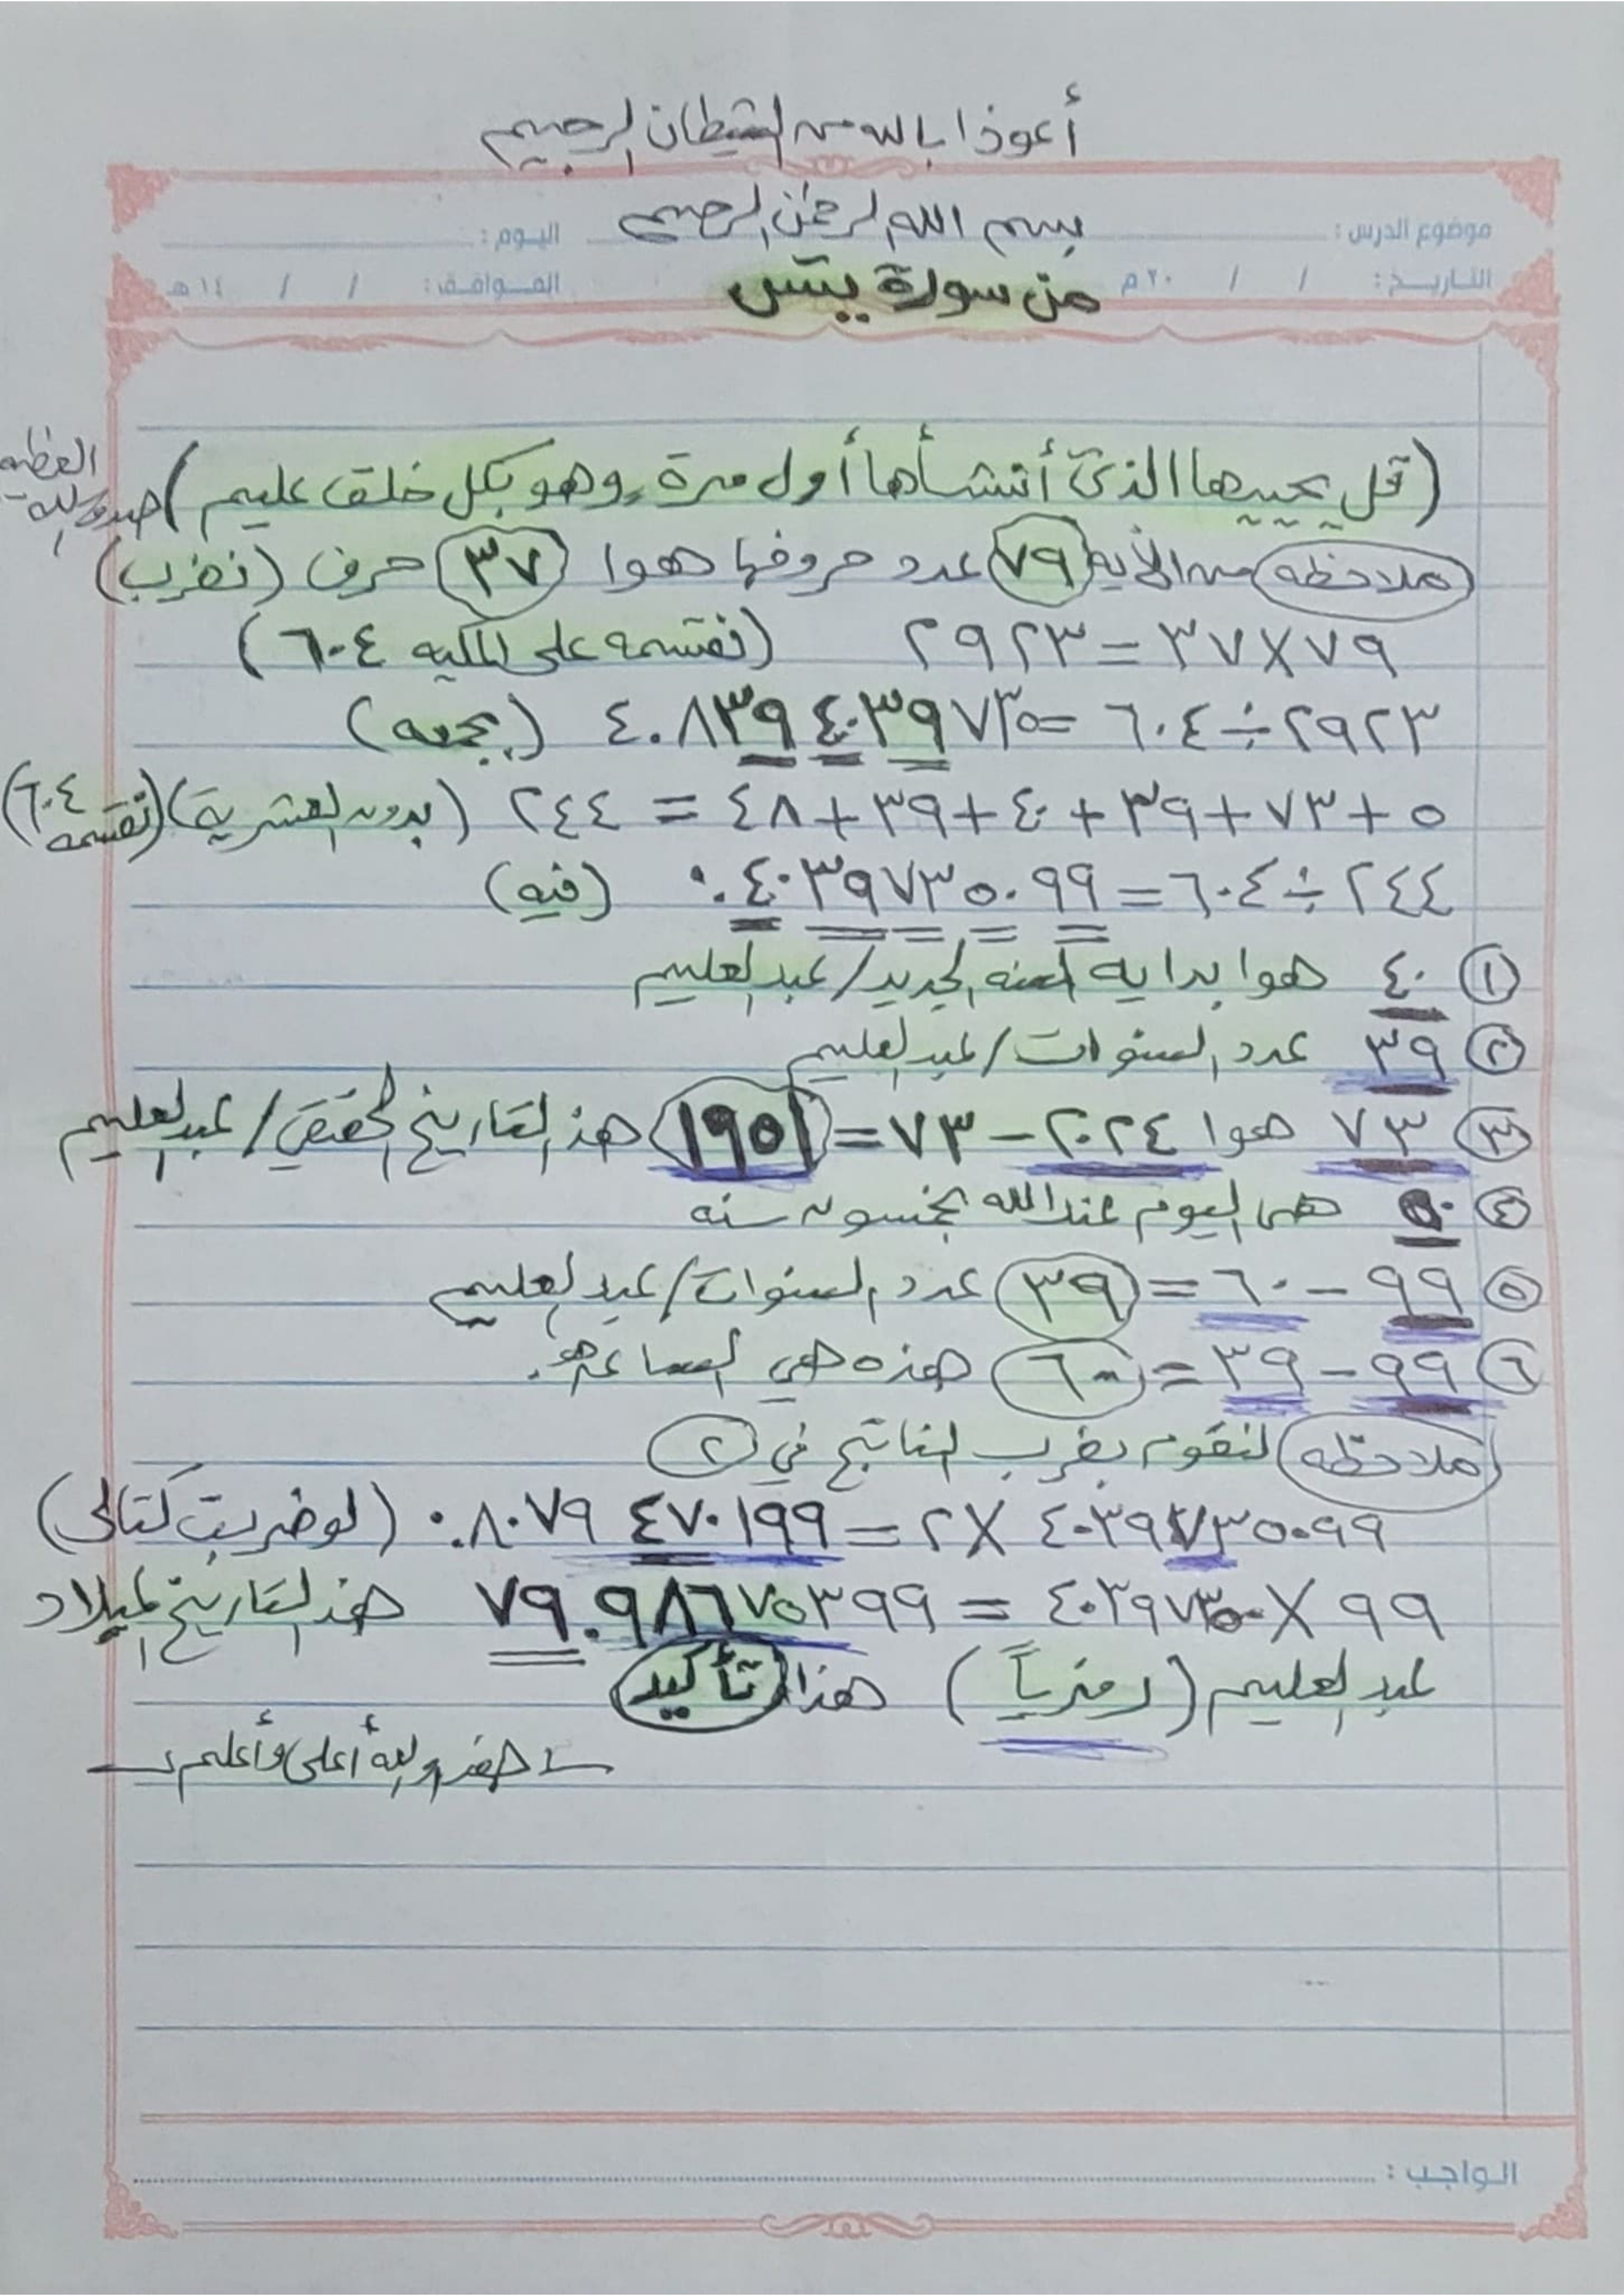 أعوذا بالله من الشيطان الرجيم
بسم الله الرحمن الرحيم
موضوع الدرس : اليوم :
التاريخ : / / ٢٠ م الموافق : / / ١٤ هـ
من سورة يس
(قل يحييها الذي أنشأها أول مرة وهو بكل خلق عليم) صدق الله العظيم
ملاحظه من الأيه ٧٩ عدد حروفها هوا ٣٧ حرف (نضرب)
٧٩ × ٣٧ = ٢٩٢٣ (نقسمه على الكليه ٦٠٤)
٢٩٢٣ ÷ ٦٠٤ = ٤.٨٣٩٤٠٣٩٧٣٥ (بجمعه)
٥ + ٧٣ + ٣٩ + ٤٠ + ٣٩ + ٤٨ = ٢٤٤ (بدون العشرية) (نقسمه ٦٠٤)
٢٤٤ ÷ ٦٠٤ = ٠.٤٠٣٩٧٣٥٠٩٩ (فيه)
١ ٤٠ هوا بدايه السنه الجديد / عبد العليم
٢ ٣٩ عدد السنوات / عبد العليم
٣ ٧٣ هوا ٢٠٢٤ - ٧٣ = ١٩٥١ هذ التاريخ الحقيقي / عبد العليم
٤ ٥٠ هى اليوم عند الله بخمسون سنه
٥ ٩٩ - ٦٠ = ٣٩ عدد السنوات / عبد العليم
٦ ٩٩ - ٣٩ = ٦٠ هذه هي الساعه
ملاحظه لنقوم بضرب الناتج في ٢
٤٠٣٩٧٣٥٠٩٩ × ٢ = ٠.٨٠٧٩٤٧٠١٩٩ (لو ضربت كتالى)
٩٩ × ٤٠٣٩٧٣٥٠ = ٧٩.٩٨٦٧٥٣٩٩ هذ التاريخ لميلاد
عبد العليم (رمزياً) هذا تأكيد
هذ والله أعلى وأعلم
الواجب :